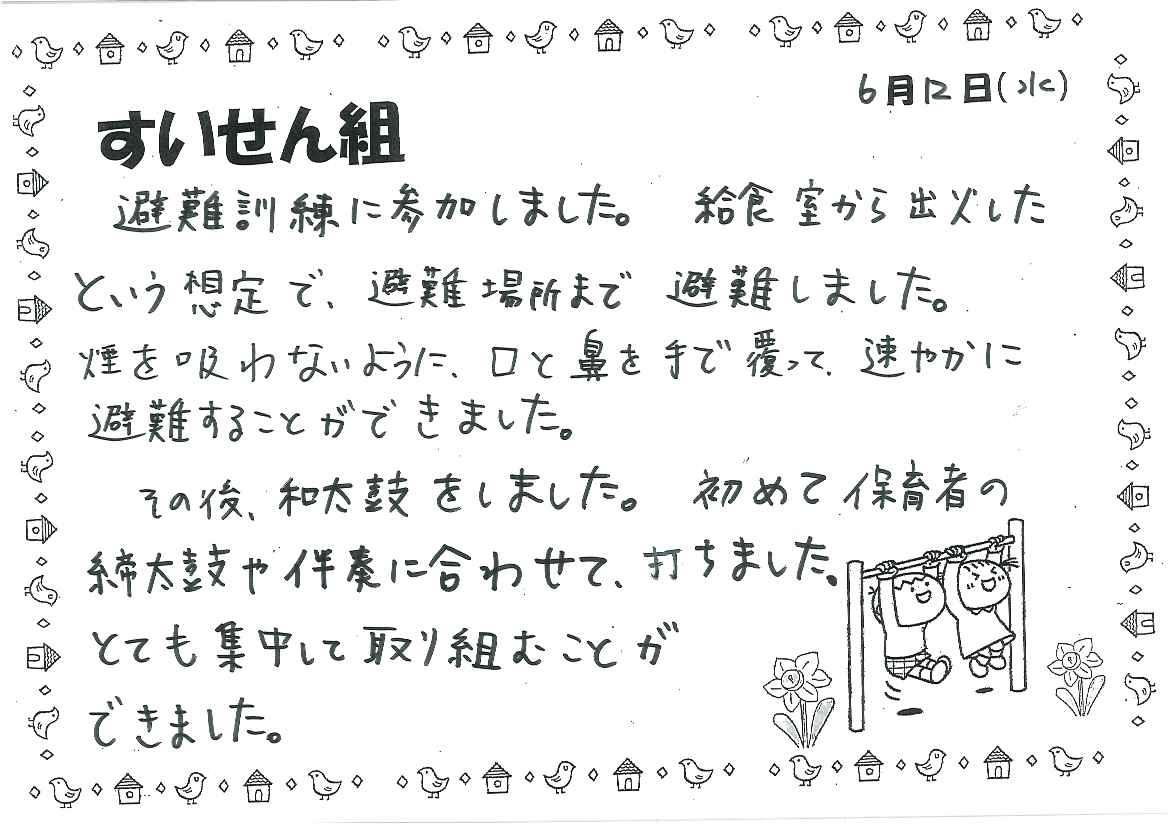 6月12日(水)
すいせん組
避難訓練に参加しました。 給食室から出火した
という想定で、避難場所まで 避難しました。
煙を吸わないように、口と鼻を手で覆って、速やかに
避難することができました。
その後、和太鼓をしました。 初めて保育者の
締太鼓や伴奏に合わせて、打ちました。
とても集中して取り組むことが
できました。